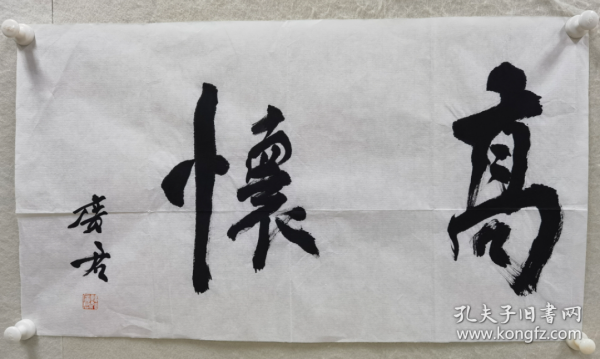 高懷
孔夫子旧書网
www.kongfz.com